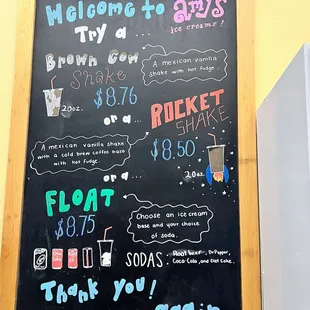 Welcome to amy's
ice creams!
Try a
Brown Cow
Shake
A mexican vanilla
shake with hot fudge.
20oz
$8.76
or a..
ROCKET
SHAKE
A mexican vanilla shake
with a cold brew coffee base
with hot fudge.
$8.50
20oz
or a..
FLOAT
$8.75
Choose an ice cream
base and your choice
of soda.
SODAS: Root beer, Dr Pepper,
Coca-Cola, and Diet Coke.
Thank you!
again